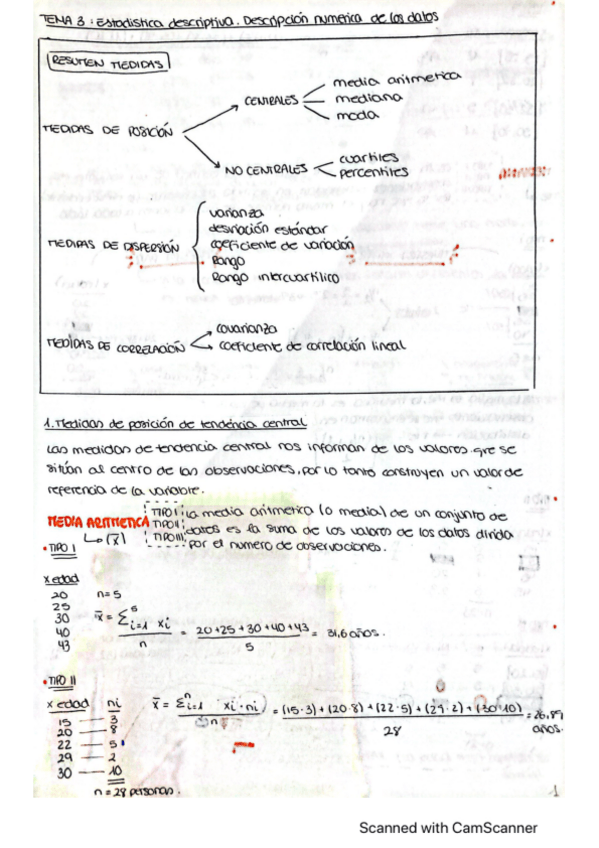 TEMA 3: Estadistica descriptiva. Descripción numerica de los datos
RESUMEN MEDIDAS
MEDIDAS DE POSICIÓN
CENTRALES
media aritmetica
mediana
moda
NO CENTRALES
cuartiles
percentiles
MEDIDAS DE DISPERSIÓN
varianza
desviación estándar
coeficiente de variación
Rango
Rango intercuartílico
MEDIDAS DE CORRELACIÓN
covarianza
coeficiente de correlación lineal
1. Medidas de posición de tendencia central
Las medidas de tendencia central nos informan de los valores que se
sitúan al centro de las observaciones, por lo tanto construyen un valor de
referencia de la variable.
MEDIA ARITMETICA
↳ (x̄)
TIPO I
TIPO II
TIPO III
La media aritmetica (o media) de un conjunto de
datos es la suma de los valores de los datos divida
por el numero de observaciones.
• TIPO I
x edad
20 n=5
25
30
40
43
x̄ = Σ⁵ᵢ₌₁ xi / n = 20+25+30+40+43 / 5 = 31,6 años.
• TIPO II
x edad ni
15 — 3
20 — 8
22 — 5
29 — 2
30 — 10
n = 28 personas.
x̄ = Σⁿᵢ₌₁ xi · ni / n = (15·3)+(20·8)+(22·5)+(29·2)+(30·10) / 28 = 26,89 años.
1
Scanned with CamScanner